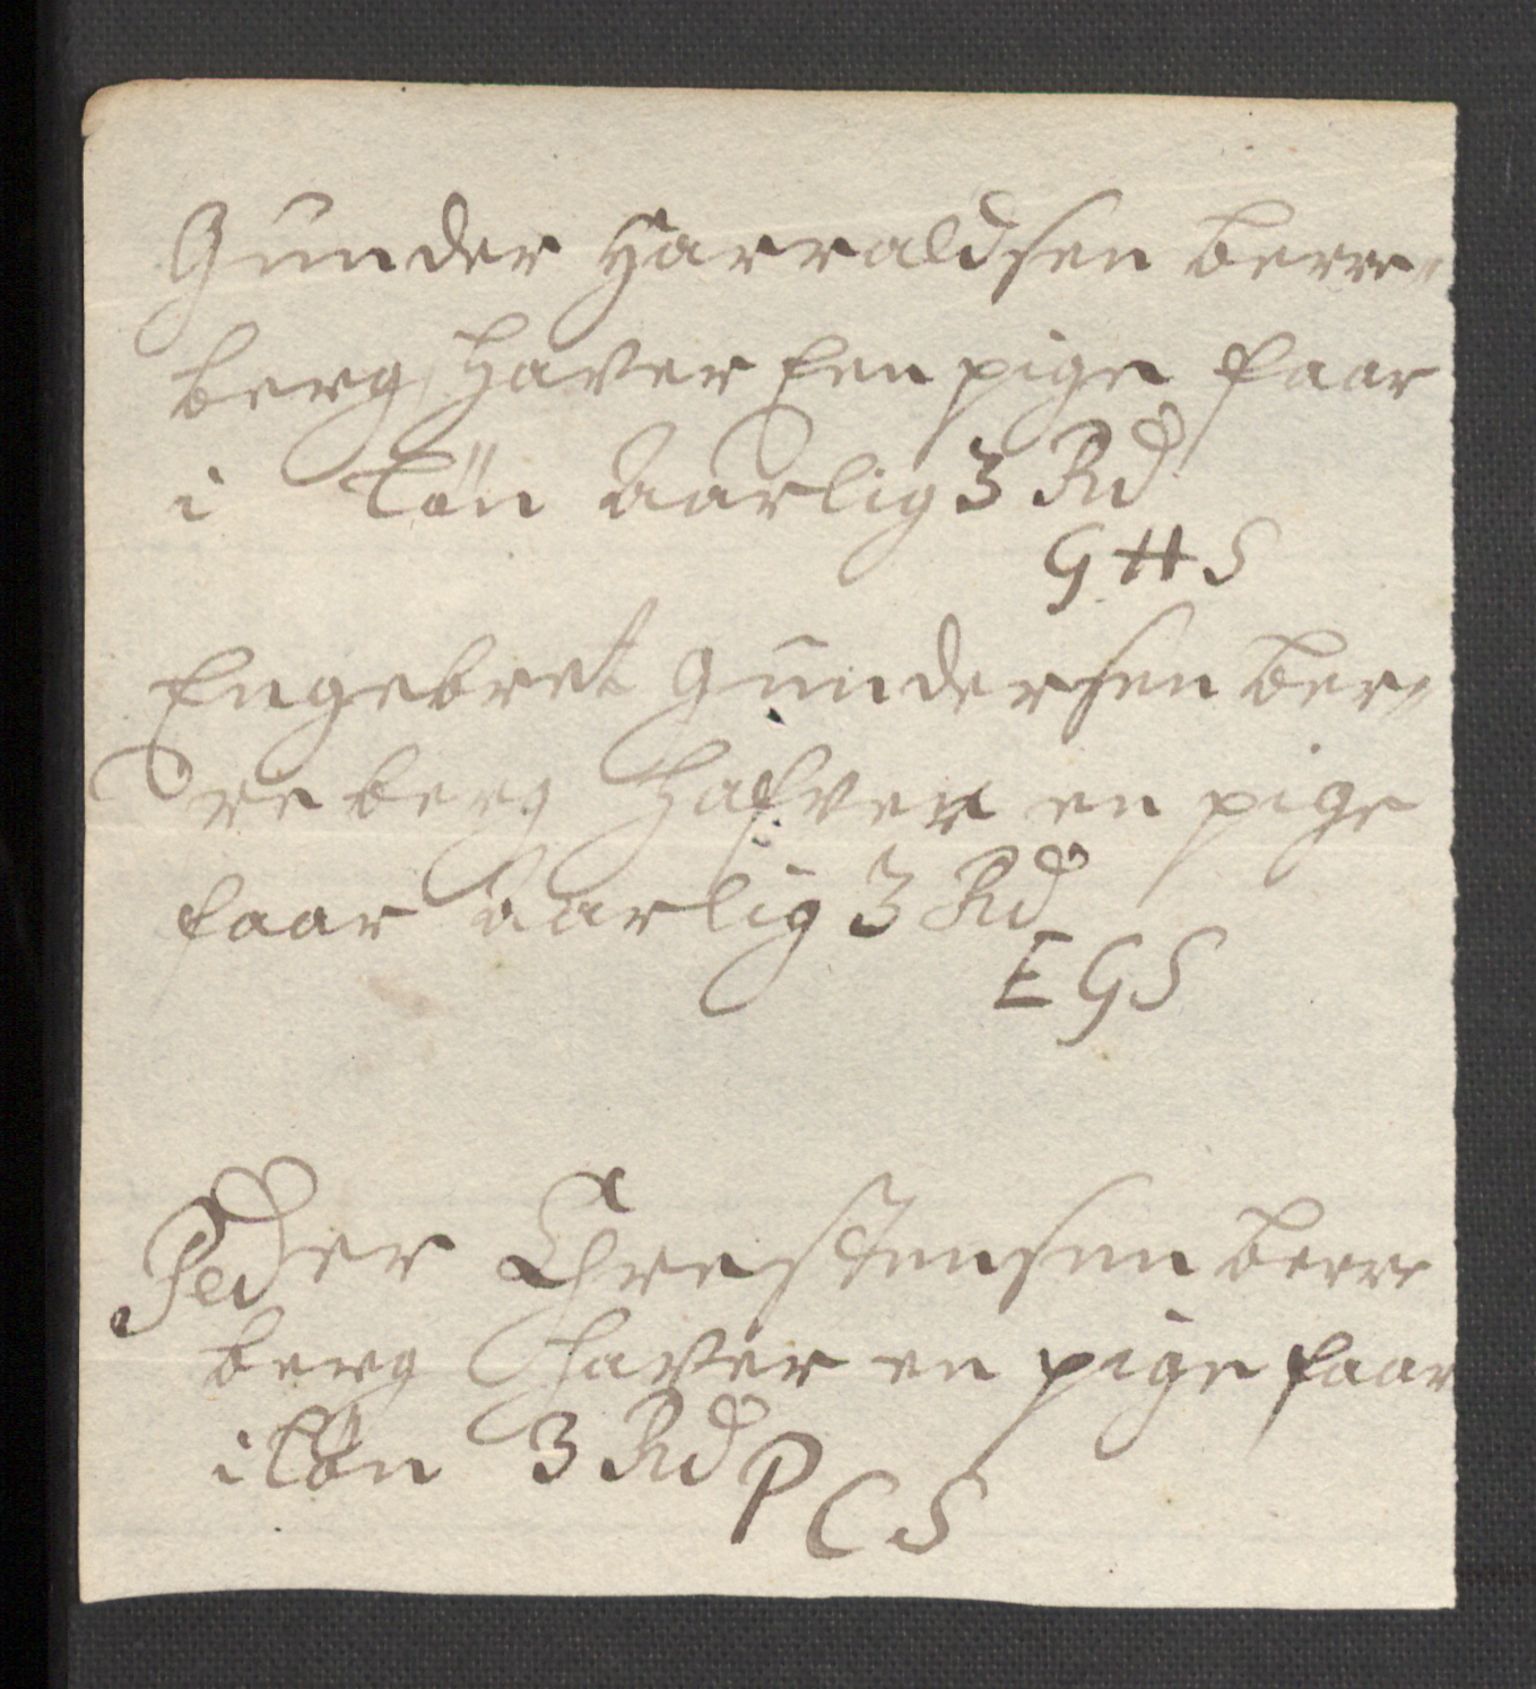 Gunder Harraldsen berre-
berg, Haver Een pige faar
i løn Aarlig 3 Rd
GHS
Engebret Gundersen ber-
re berg Hafver en pige
faar Aarlig 3 Rd
EGS
Peder Chrestensen berre
berg Haver en pige faar
i løn 3 Rd PCS